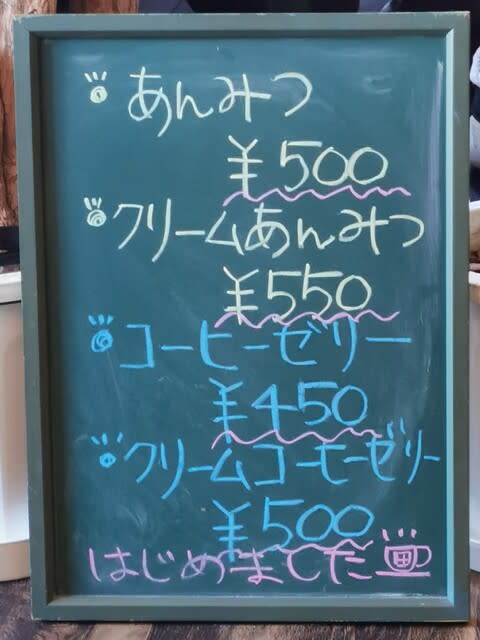 あんみつ
¥500
クリームあんみつ
¥550
コーヒーゼリー
¥450
クリームコーヒーゼリー
¥500
はじめました